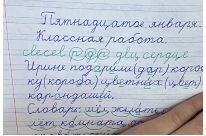 Пятнадцатое января.
Классная работа.
сердце
Ирине подарили (дар) короб
ку (короба) цветных (цвет)
карандашей.
Словарь:
комната